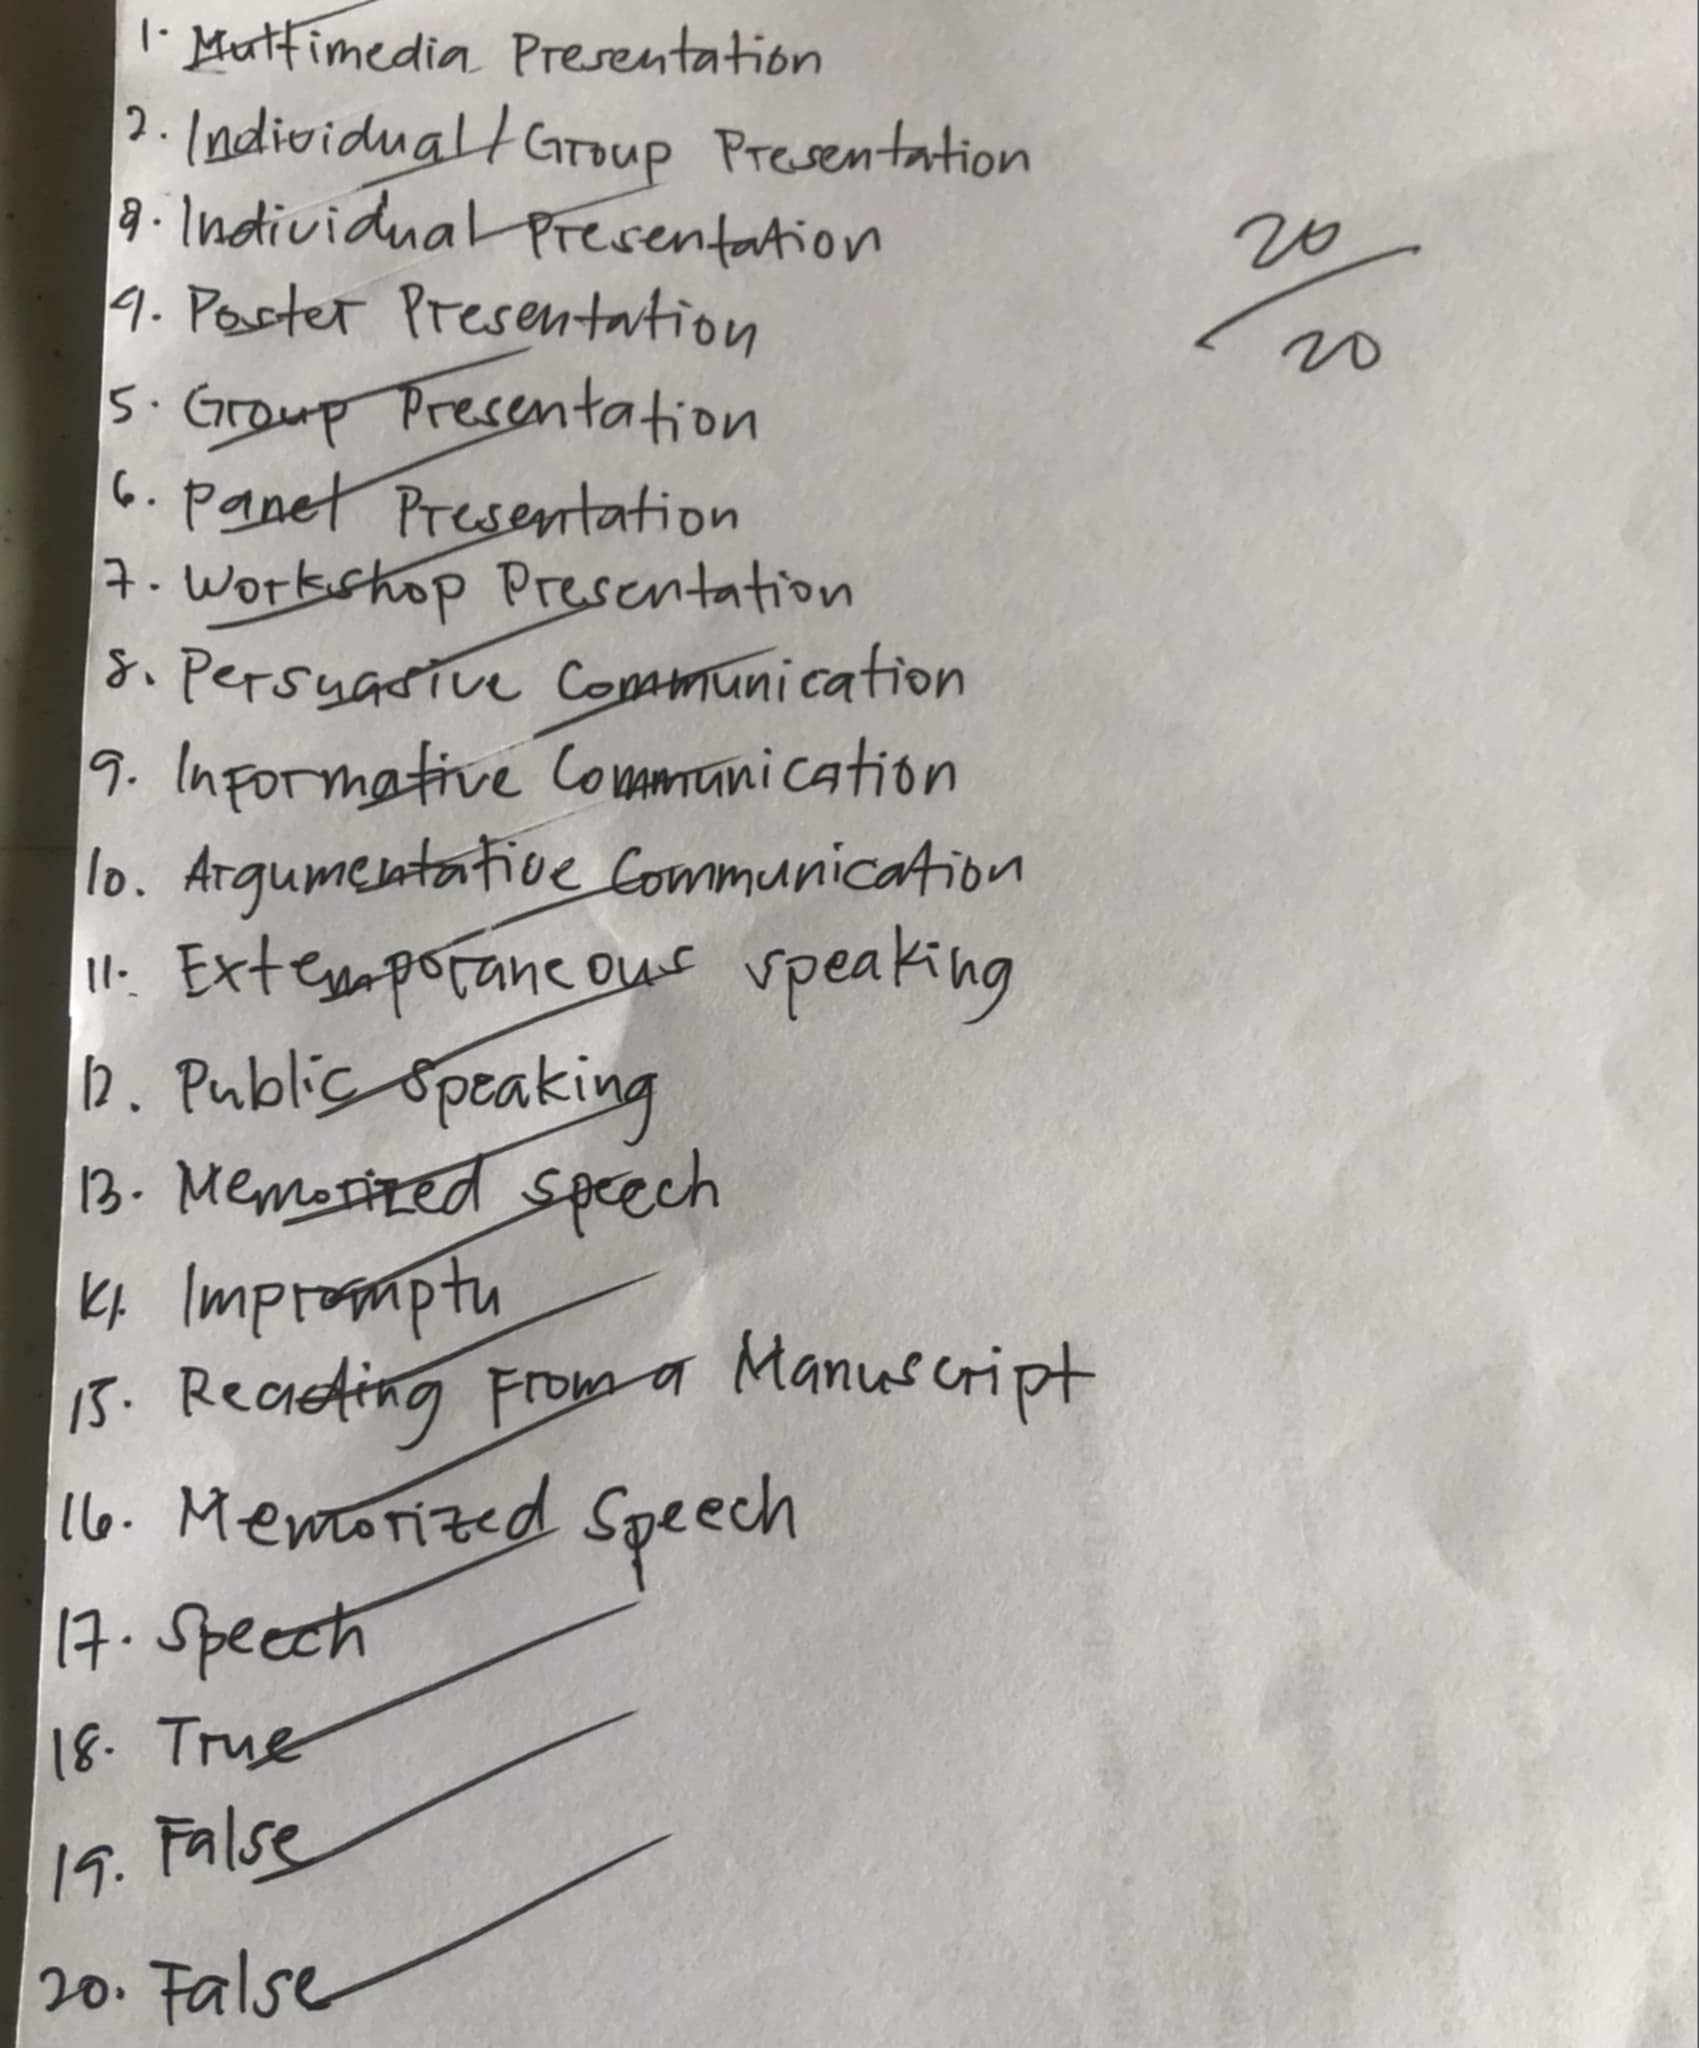 1. Multimedia Presentation
2. Individual/Group Presentation
3. Individual Presentation
20
4. Poster Presentation
20
5. Group Presentation
6. Panel Presentation
7. Workshop Presentation
8. Persuasive Communication
9. Informative Communication
10. Argumentative Communication
11. Extemporaneous speaking
12. Public Speaking
13. Memorized speech
14. Impromptu
15. Reading From a Manuscript
16. Memorized Speech
17. Speech
18. True
19. False
20. False